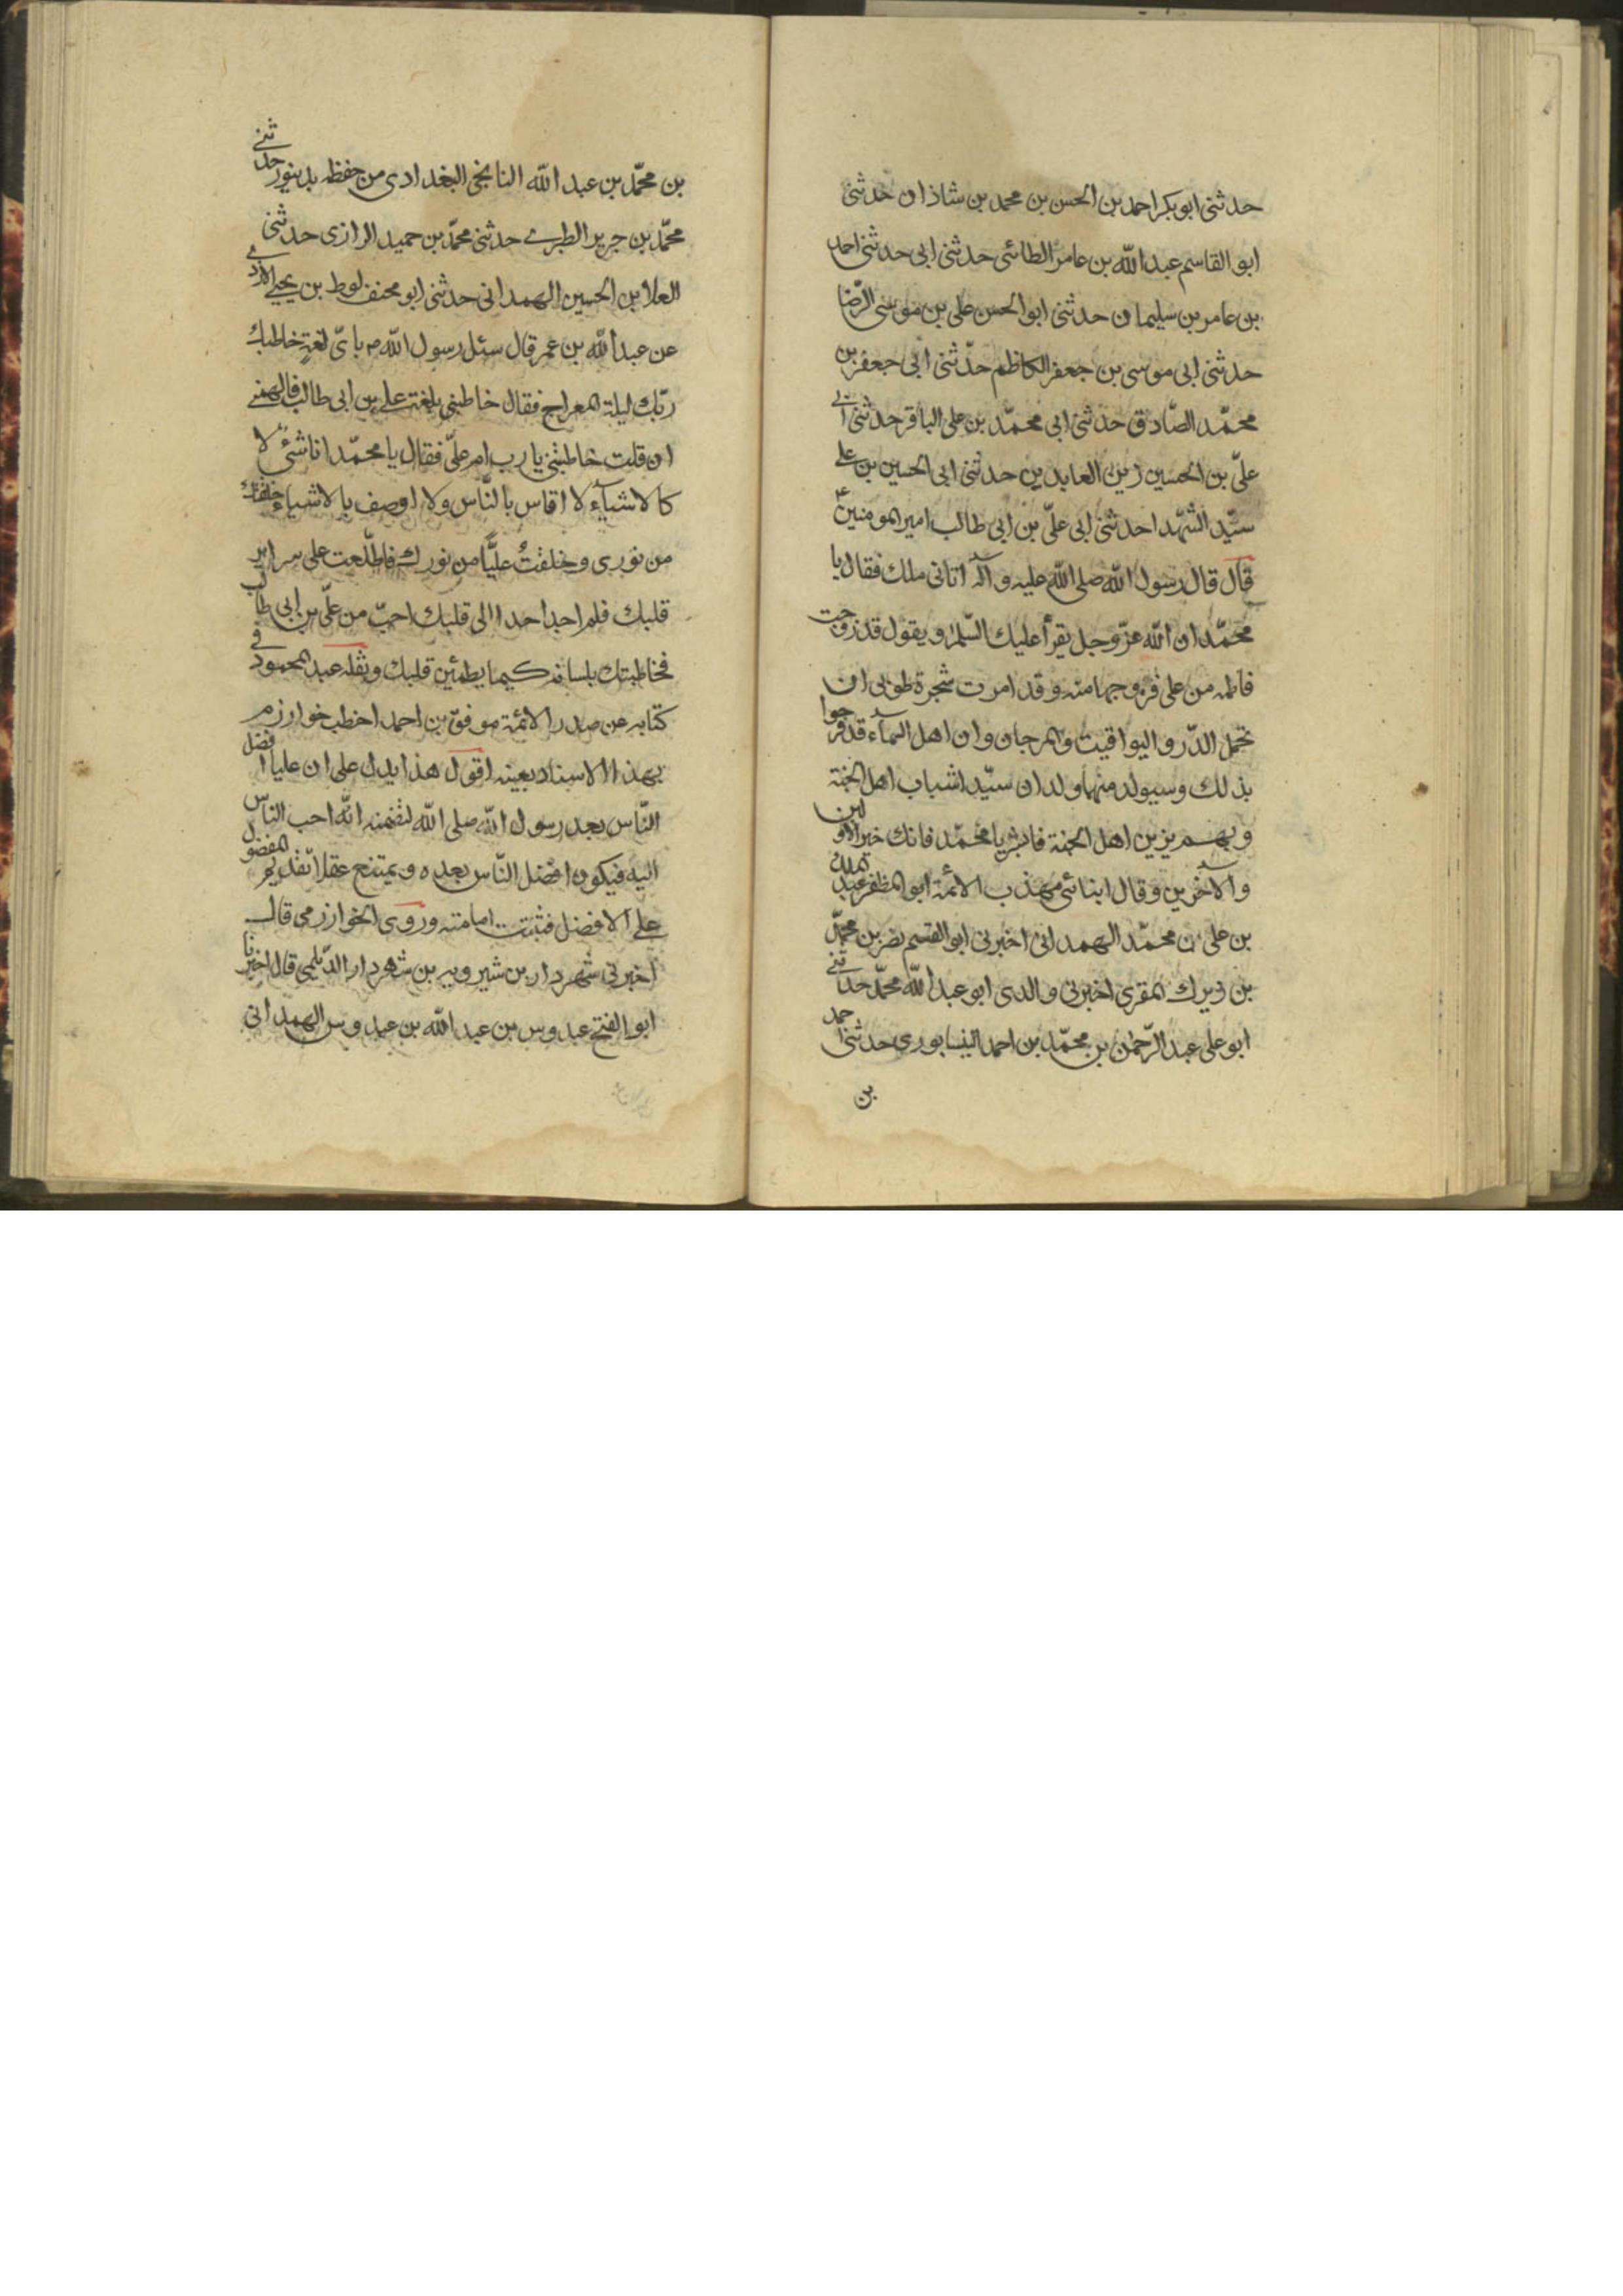 حدثنى ابو بكر احمد بن الحسن بن محمد بن شاذان حدثنى
ابو القاسم عبد الله بن عامر الطائى حدثنى ابى حدثنى احمد
بن عامر بن سليمان حدثنى ابو الحسن على بن موسى الرّضا
حدثنى ابى موسى بن جعفر الكاظم حدّثنى ابى جعفر بن
محمّد الصّادق حدثنى ابى محمّد بن على الباقر حدثنى ابى
علىّ بن الحسين زين العابدين حدثنى ابى الحسين بن على
سيّد الشّهدا حدثنى ابى علىّ بن ابى طالب امير المومنين ع
قال قال رسول الله صلى الله عليه وآله اتانى ملك فقال يا
محمّد ان الله عزّ وجل يقرأ عليك السّلم ويقول قد زوجت
فاطمه من على فزوجها منه وقد امرت شجرة طوبى ان
تحمل الدّر واليواقيت والمرجان وان اهل السمآء قد فرحوا
بذلك وسيولد منهما ولدان سيّدا شباب اهل الجنة
وبهم يزين اهل الجنة فابشر يا محمّد فانك خير الاولين
والآخرين وقال انبائى مهذب الائمة ابو المظفر عبد الملك
بن على بن محمّد الهمدانى اخبرنى ابو القسم نصر بن محمّد
بن زيرك المقرى اخبرنى والدى ابو عبد الله محمّد حدثنى
ابو على عبد الرّحمن بن محمّد بن احمد النيسابورى حدثنى احمد
بن
بن محمّد بن عبد الله النانجى البغدادى من حفظه بدينور حدثنى
محمّد بن جرير الطبرى حدثنى محمّد بن حميد الرازى حدثنى
العلا بن الحسين الهمدانى حدثنى ابو مخنف لوط بن يحيى الازدى
عن عبد الله بن عمر قال سئل رسول الله ص باىّ لغةٍ خاطبك
ربّك ليلة المعراج فقال خاطبنى بلغة على بن ابى طالب فالهمنى
ان قلت خاطبتنى يا رب ام علىّ فقال يا محمّد انا شئ لا
كالاشيآء لا اقاس بالنّاس ولا اوصف بالاشياء خلقتك
من نورى وخلقتُ عليًّا من نورك فاطّلعت على سراير
قلبك فلم اجد احدا الى قلبك احبّ من علىّ بن ابى طالب
فخاطبتك بلسانه كيما يطمئن قلبك ونقله عبد المحمود فى
كتابه عن صدر الائمة موفق بن احمد اخطب خوارزم
بهذا الاسناد بعينه اقول هذا يدل على ان عليا افضل
النّاس بعد رسول الله صلى الله لتضمنه انّه احب الناس
اليه فيكون افضل النّاس بعده ويمتنع عقلا تقديم المفضول
على الافضل فثبتت امامته وروى الخوارزمى قال
اخبرنى شهردار بن شيرويه بن شهردار الدّيلمى قال اخبرنا
ابو الفتح عبدوس بن عبد الله بن عبدوس الهمدانى